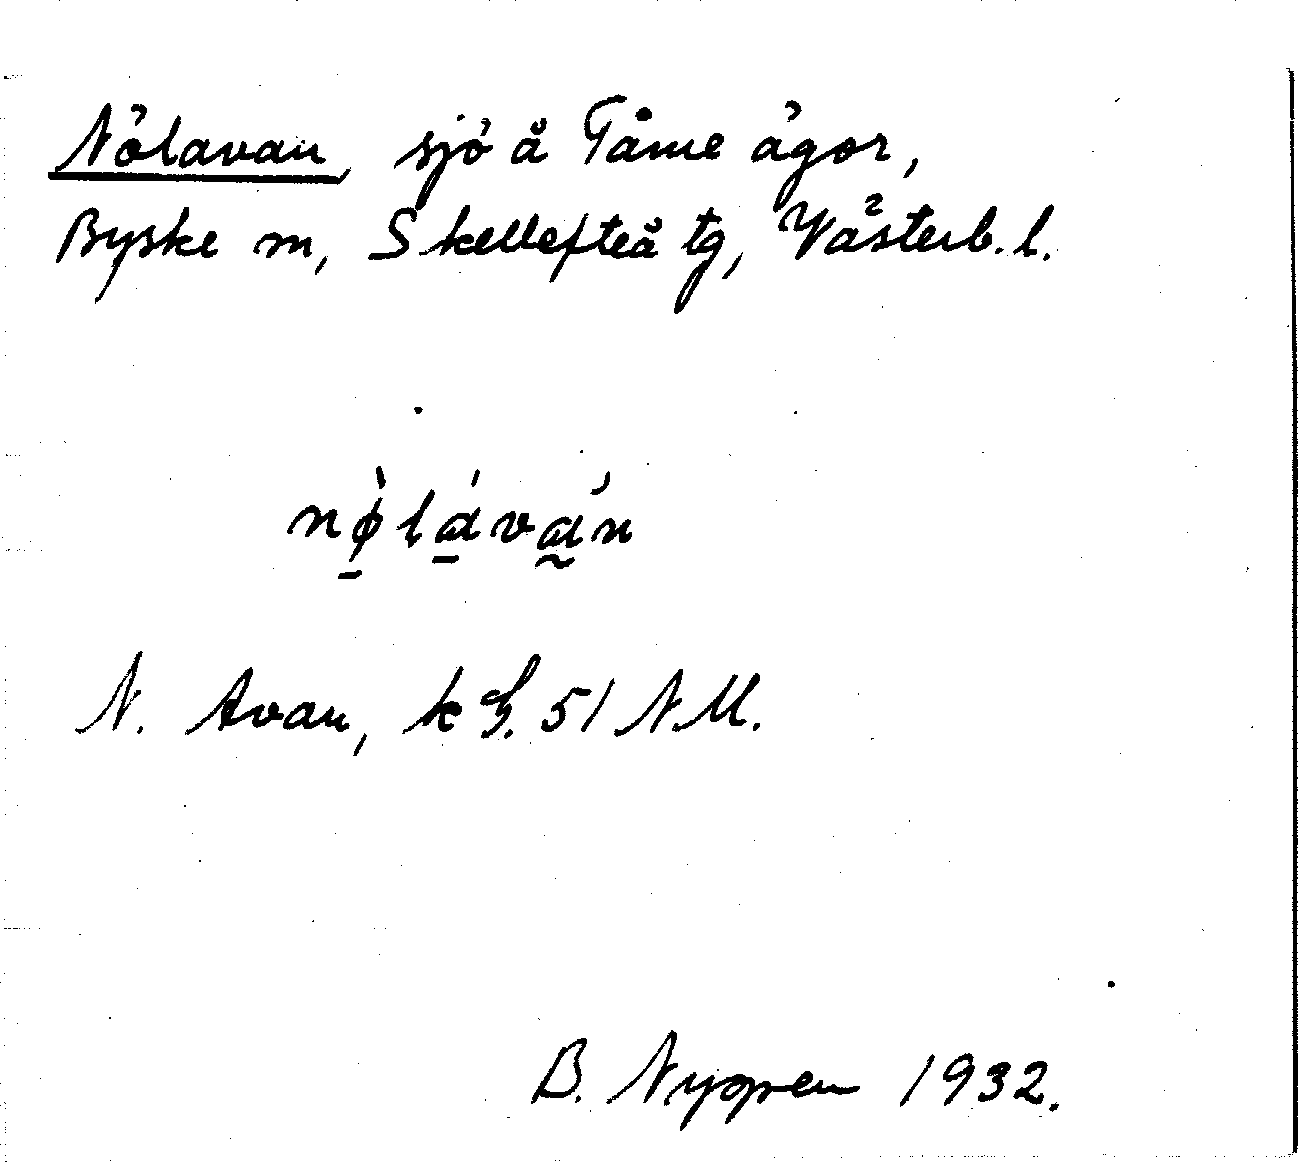 Nölavan, sjö å Tåme ägor,
Byske sn, Skellefteå tg, Västerb. l.
nø̱̀lá̱vá̰n
N. Avan, k 51 N M.
B. Nygren 1932.